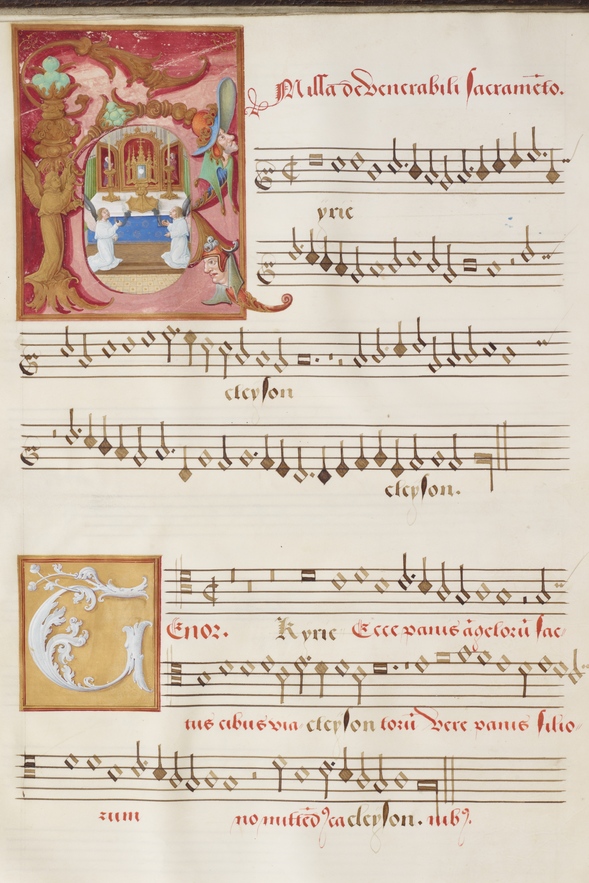 Missa de Venerabili sacramēto.
yrie
eleyson
eleyson.
Enor. Kyrie Ecce panis āgelorū fac-
tus cibus via eleyson torū Vere panis filio-
rum no mittēdꝰ ca eleyson. nibꝰ.